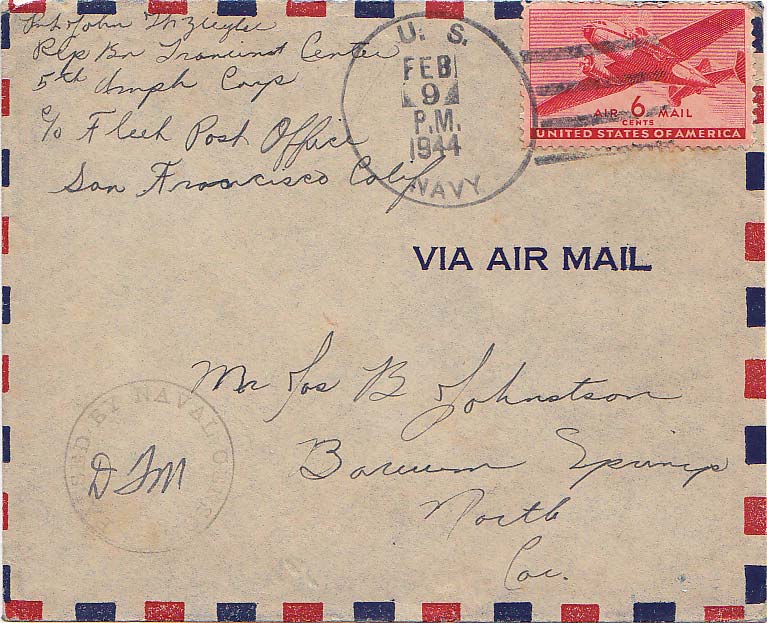 Pvt John M Ziegler
Rep Bn Transient Center
5th Amph Corp
c/o Fleet Post Office
San Francisco Calif
U. S.
FEB
9
P.M.
1944
NAVY
AIR 6 MAIL
CENTS
UNITED STATES OF AMERICA
VIA AIR MAIL
Mr Jos B Johnston
Barium Springs
North
Car.
PASSED BY NAVAL CENSOR